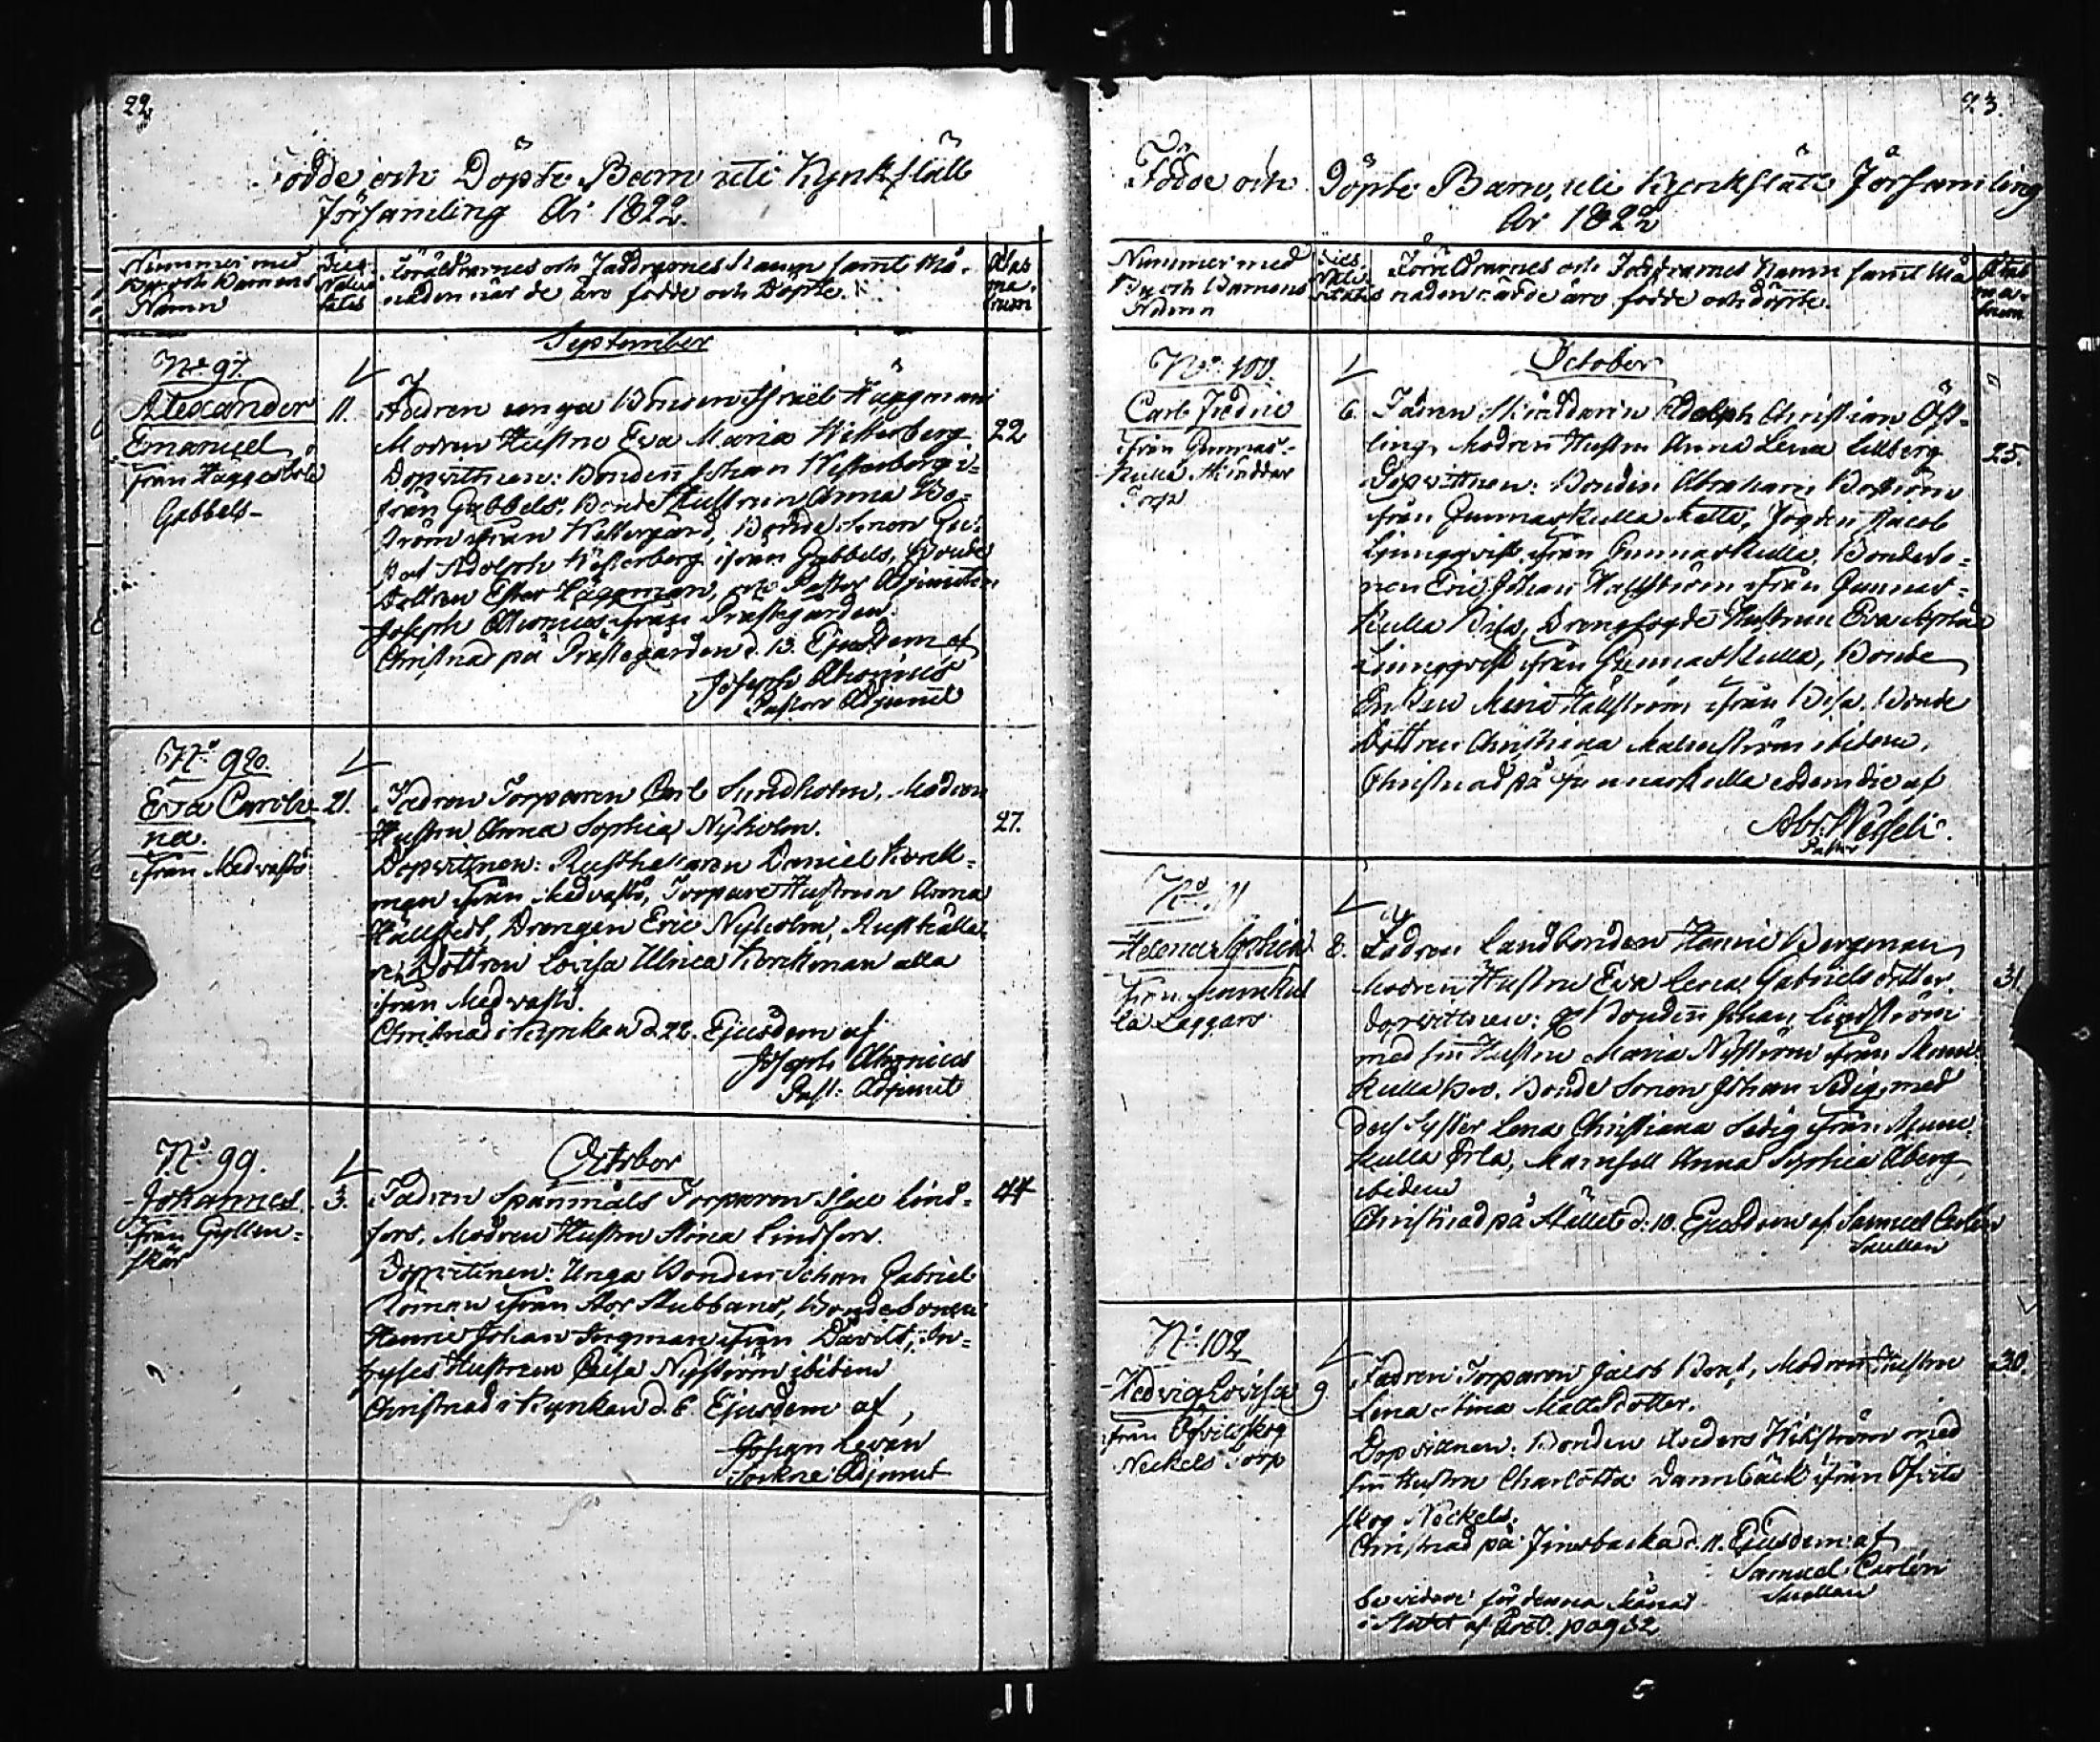 22.
Födde och Döpte Barn uti Kyrkslätt
Församling År 1822.
Nummer med
By och Barnens
Namn
Dies
Nativi
tatis
Föräldrarnes och Faddrarnes Namn samt Må-
naden när de äro födde och Döpte.
Ætas
ma-
trum
September
No 97.
Alexander
Emanuel
från Häggesböle
Gabbels-
11.
Fadren unga Bonden Israël Häggman
Modren Hustru Eva Maria Westerberg
Dopvittnen: Bonden Johan Westerberg
från Gabbels, Bonde Hustrun Anna Bo-
ström från Westergård, Bonde Sonen Gu-
staf Adolph Westerberg ifrån Gabbels, Bonde
Dottren Ester Häggman, och Pastors Adjuncten
Joseph Ahonius från Prästegården.
Christnad på Prästegården d. 13. Ejusdem af
Joseph Ahonius
Pastors Adjunct
22
No 98.
Eva Caroli-
na.
ifrån Medvasts
21.
Fadren Torparen Carl Sundholm, Modren
Hustru Anna Sophia Nyholm.
Dopvittnen: Rusthållaren Daniel Korck-
man ifrån Medvasts, Torpare Hustrun Anna
Hällstedt, Drengen Eric Nyholm, Rusthålla-
re Dottren Lovisa Ulrica Korckman alla
ifrån Medvasts.
Christnad i Kyrkan d. 22. Ejusdem af
Joseph Ahonius
Past: Adjunct
27.
October
No 99.
Johannes
från Gyllen-
skär
3.
Fadren Spånmåls Torparen Isac Lind-
fors, Modren Hustru Stina Lindfors.
Dopvittnen: Unga Bonden Johan Gabriel
Roman ifrån Stor Stubbans, Bonde Sonen
Henric Johan Bergman ifrån Dävits, In-
hyses Hustrun Caisa Nyström ibidem
Christnad i Kyrkan d. 6. Ejusdem af
Johan Levan
Sockne Adjunct
44
23.
Födde och Döpte Barn, uti Kyrkslätt Församling
År 1822
Nummer med
By och Barnens
Namn
Dies
Nativi
tatis
Föräldrarnes och Faddrarnes Namn samt Må-
naden när de äro födde och döpte.
Ætas
ma-
trum
October
No 100.
Carl Fredric
ifrån Gunnars-
kulla Skräddar
Torp
6.
Fadren Skräddaren Adolph Christian Öst-
ling, Modren Hustru Anna Lena Lillberg
Dopvittnen: Bonden Abraham Boström
ifrån Gunnarskulla Matts, Fogden Jacob
Ljungqvist ifrån Gunnarskulla, Bondeso-
nen Eric Johan Hallström ifrån Gunnars-
kulla Bisa, Drengfogde Hustrun Eva
Ljungqvist ifrån Gunnarskulla, Bonde
Enkan Maria Hällström ifrån Bisa, Bonde
dottren Christina Malmström ibidem,
Christnad på Gunnarskulla eodem die af
Abr: Wesseli.
Pastor
25.
No 101
Helena Sophia
från Munkul
la Laggars
8.
Fadren Landbonden Henric Bergman
Modren Hustru Eva Lena Gabrielsdotter.
Dopvittnen: Bonden Johan Lindström
med sin Hustru Maria Nyström ifrån Mun-
kulla Bos. Bonde Sonen Johan Sedig, med
dess Syster Lena Christiana Sedig ifrån Mun-
kulla Erla, Mamsell Anna Sophia Åberg
ibidem
Christnad på Stället d: 10. Ejusdem af Samuel Carlén
Sacellan
31.
No 102
Hedvig Lovisa
från Öfvitsskog
Neckels Torp
9
Fadren Torparen Jacob Bons, Modren Hustru
Lena Stina Mattsdotter.
Dopvittnen: Bonden Anders Wikström med
sin Hustru Charlotta Dannbäck ifrån Öfvits
skog Neckels.
Christnad på Finsbacka d. 11. Ejusdem af
Samuel Carlén
Sacellan
30.
Se vidare för denna Månad
i Slutet af Året pag 32